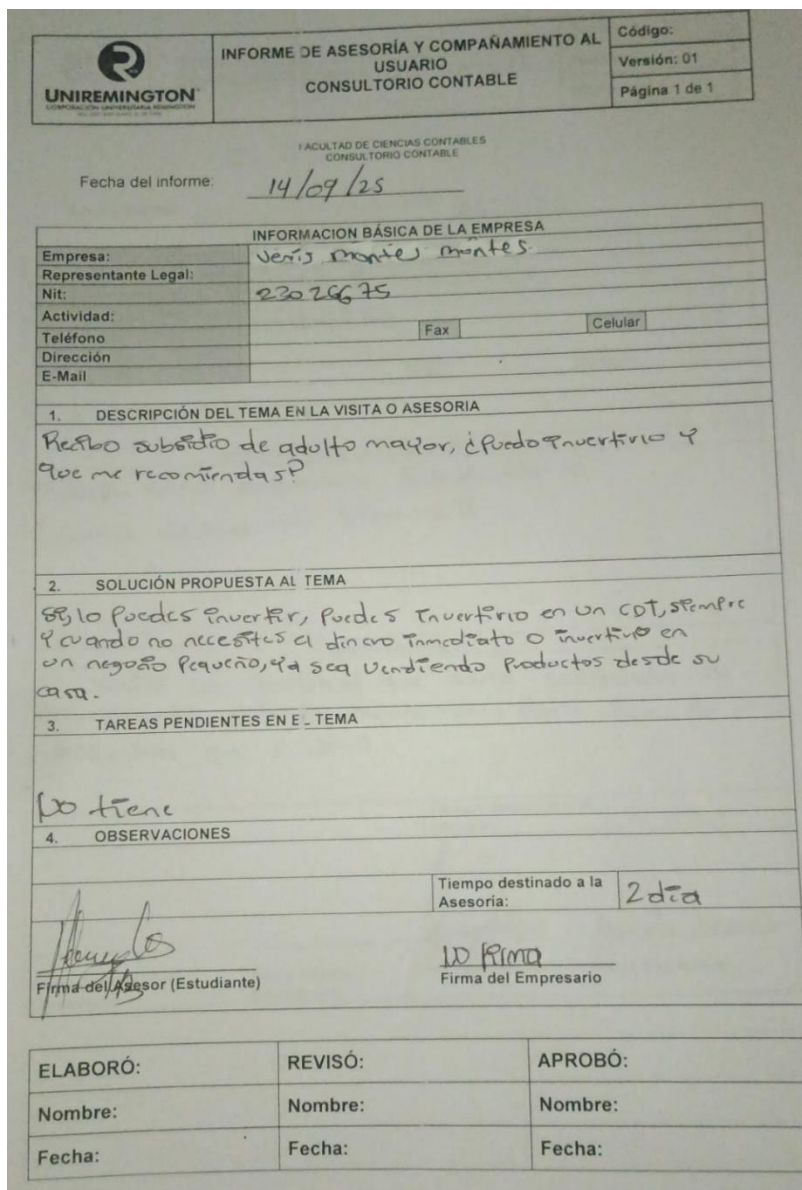 UNIREMINGTON
CORPORACIÓN UNIVERSITARIA REMINGTON
INFORME DE ASESORÍA Y COMPAÑAMIENTO AL
USUARIO
CONSULTORIO CONTABLE
Código:
Versión: 01
Página 1 de 1
FACULTAD DE CIENCIAS CONTABLES
CONSULTORIO CONTABLE
Fecha del informe: 14/09/25
INFORMACION BÁSICA DE LA EMPRESA
Empresa: Veris montes montes
Representante Legal:
Nit: 23026675
Actividad:
Teléfono Fax Celular
Dirección
E-Mail
1. DESCRIPCIÓN DEL TEMA EN LA VISITA O ASESORIA
Recibo subsidio de adulto mayor, ¿puedo invertirlo y
que me recomiendas?
2. SOLUCIÓN PROPUESTA AL TEMA
Si, lo puedes invertir, puedes invertirlo en un CDT, siempre
y cuando no necesites el dinero inmediato o invertirlo en
un negocio pequeño, ya sea vendiendo productos desde su
casa.
3. TAREAS PENDIENTES EN E_ TEMA
No tiene
4. OBSERVACIONES
Tiempo destinado a la
Asesoria: 2 dia
Firma del Asesor (Estudiante)
No firma
Firma del Empresario
ELABORÓ: REVISÓ: APROBÓ:
Nombre: Nombre: Nombre:
Fecha: Fecha: Fecha: